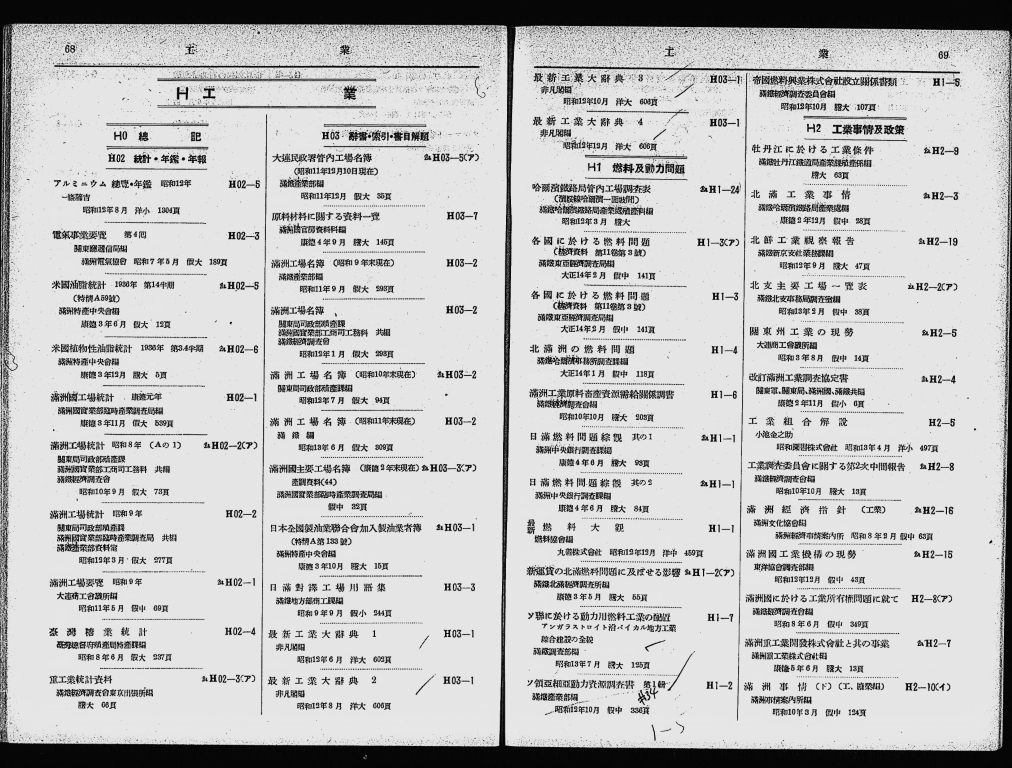 68
工業
H 工業
H0 總記
H02 統計・年鑑・年報
アルミニウム 總覽・年鑑 昭和12年 H02—5
昭和12年8月 洋小 1304頁
電氣事業要覽 第4囘 H02—3
關東遞信局編
滿洲電氣協會 昭和7年5月 假大 189頁
米國油脂統計 1936年 第14半期 2a H02—5
(特情A59號)
滿洲特產中央會編
康德3年6月 假大 12頁
米國植物性油脂統計 1936年 第3.4半期 2a H02—6
滿洲特產中央會編
康德3年12月 謄大 5頁
滿洲國工場統計 康德元年 2a H02—1
滿洲國實業部臨時產業調査局編
康德3年11月 假大 539頁
滿洲工場統計 昭和8年 (Aの1) 2a H02—2(ア)
關東局司政部殖產課
滿洲國實業部工商司工務科 共編
滿鐵經濟調査會
昭和10年9月 假大 73頁
滿洲工場統計 昭和9年 H02—2
關東局司政部殖產課
滿洲國實業部臨時產業調査局 共編
滿鐵產業部資料室
昭和12年3月 假大 277頁
滿洲工場要覽 昭和9年 2a H02—1
大連商工會議所編
昭和11年5月 假中 69頁
臺灣糖業統計 H02—4
臺灣總督府殖產局特產課編
昭和8年6月 假大 237頁
重工業統計資料 2a H02—3(ア)
滿鐵經濟調査會東京出張所編
謄大 66頁
H03 辭書・索引・書目解題
大連民政署管內工場名簿 2a H03—5(ア)
(昭和11年12月10日現在)
滿鐵產業部編
昭和11年12月 假大 35頁
原料材料に關する資料一覽 H03—7
康德4年9月 謄大 145頁
滿洲工場名簿 (昭和9年末現在) H03—2
滿鐵產業部編
昭和11年9月 假大 293頁
滿洲工場名簿 H03—2
關東局司政部殖產課
滿洲國實業部工商司工務科 共編
滿鐵經濟調査會
昭和12年1月 假大 293頁
滿洲工場名簿 (昭和10年末現在) 2a H03—2
關東局司政部殖產課編
昭和12年7月 假大 94頁
滿洲工場名簿 (昭和11年末現在) H03—2
滿鐵編
昭和13年6月 假大 309頁
滿洲國主要工場名簿 (康德2年末現在) 2a H03—3(ア)
產調資料(44)
滿洲國實業部臨時產業調査局編
假中 32頁
日本全國製油業聯合會加入製油業者簿 2a H03—1
(特情A第133號)
滿洲特產中央會編
康德3年10月 謄大 15頁
日滿對譯工場用語集 H03—3
滿鐵地方部商工課編
昭和9年9月 假小 244頁
最新工業大辭典 1 H03—1
非凡閣編
昭和12年6月 洋大 602頁
最新工業大辭典 2 H03—1
非凡閣編
昭和12年8月 洋大 606頁
工業
69
最新工業大辭典 3 H03—1
非凡閣編
昭和12年10月 洋大 606頁
最新工業大辭典 4 H03—1
非凡閣編
昭和12年12月 洋大 606頁
H1 燃料及動力問題
哈爾濱鐵路局管內工場調査表 2a H1—24
昭和12年3月 謄大
各國に於ける燃料問題 H1—3(ア)
(經濟資料 第11卷第3號)
滿鐵東亞經濟調査局編
大正14年2月 假中 141頁
各國に於ける燃料問題 H1—3
(經濟資料 第11卷第3號)
滿鐵東亞經濟調査局編
大正14年2月 假中 141頁
北滿洲の燃料問題 H1—4
滿鐵哈爾濱事務所調査課編
大正14年1月 假中 118頁
滿洲工業原料畜產資源需給關係調書 H1—6
滿鐵經濟調査會編
昭和10年10月 謄大 203頁
日滿燃料問題綜觀 其の1 2a H1—1
滿洲中央銀行調査課編
康德4年6月 謄大 93頁
日滿燃料問題綜觀 其の2 2a H1—1
滿洲中央銀行調査課編
康德4年6月 謄大 84頁
最新 燃料大觀 H1—1
燃料協會編
丸善株式會社 昭和12年12月 洋中 459頁
新運賃の北滿燃料問題に及ぼせる影響 2a H1—2(ア)
滿鐵北滿經濟調査所編
康德3年5月 謄大 55頁
ソ聯に於ける動力用燃料工業の配置 H1—7
アンガラストロイト沿バイカル地方工業
綜合建設の全貌
滿鐵調査部編
昭和13年7月 謄大 125頁
ソ領亞細亞動力資源調査書 第1輯 H1—2
滿鐵產業部編
昭和12年10月 假中 336頁
帝國燃料興業株式會社設立關係書類 H1—5
滿鐵經濟調査委員會編
昭和12年10月 謄大 107頁
H2 工業事情及政策
牡丹江に於ける工業條件 2a H2—9
滿鐵牡丹江鐵道局產業課殖產係編
謄大 63頁
北滿工業事情 2a H2—3
滿鐵哈爾濱鐵路局產業處編
康德2年12月 假中 28頁
北鮮工業視察報告 2a H2—19
滿鐵新京支社業務課編
昭和12年9月 謄大 47頁
北支主要工場一覽表 2a H2—2(ア)
滿鐵北支事務局調査室編
昭和13年2月 假中 38頁
關東州工業の現勢 2a H2—5
大連商工會議所編
昭和3年8月 假中 14頁
改訂滿洲工業調査協定書 2a H2—4
關東軍、關東局、滿洲國、滿鐵共編
康德2年11月 假小 6頁
工業組合解說 H2—5
小池金之助
昭和圖書株式會社 昭和13年4月 洋小 497頁
工業調査委員會に關する第2次中間報告 2a H2—8
滿鐵經濟調査會編
昭和10年10月 謄大 13頁
滿洲經濟指針 (工業) 2a H2—16
滿洲文化協會編
滿洲經濟事情案內所 昭和8年2月 假中 63頁
滿洲國工業機構の現勢 2a H2—15
東洋協會調査部編
昭和12年12月 假中 43頁
滿洲國に於ける工業所有權問題に就て H2—8(ア)
滿鐵經濟調査會編
昭和8年6月 假中 349頁
滿洲重工業開發株式會社と其の事業 2a H2—7
滿洲重工業株式會社編
康德5年6月 謄大 13頁
滿洲事情 (下) (工、鑛業編) H2—10(イ)
滿洲事情案內所編
昭和10年3月 假中 124頁